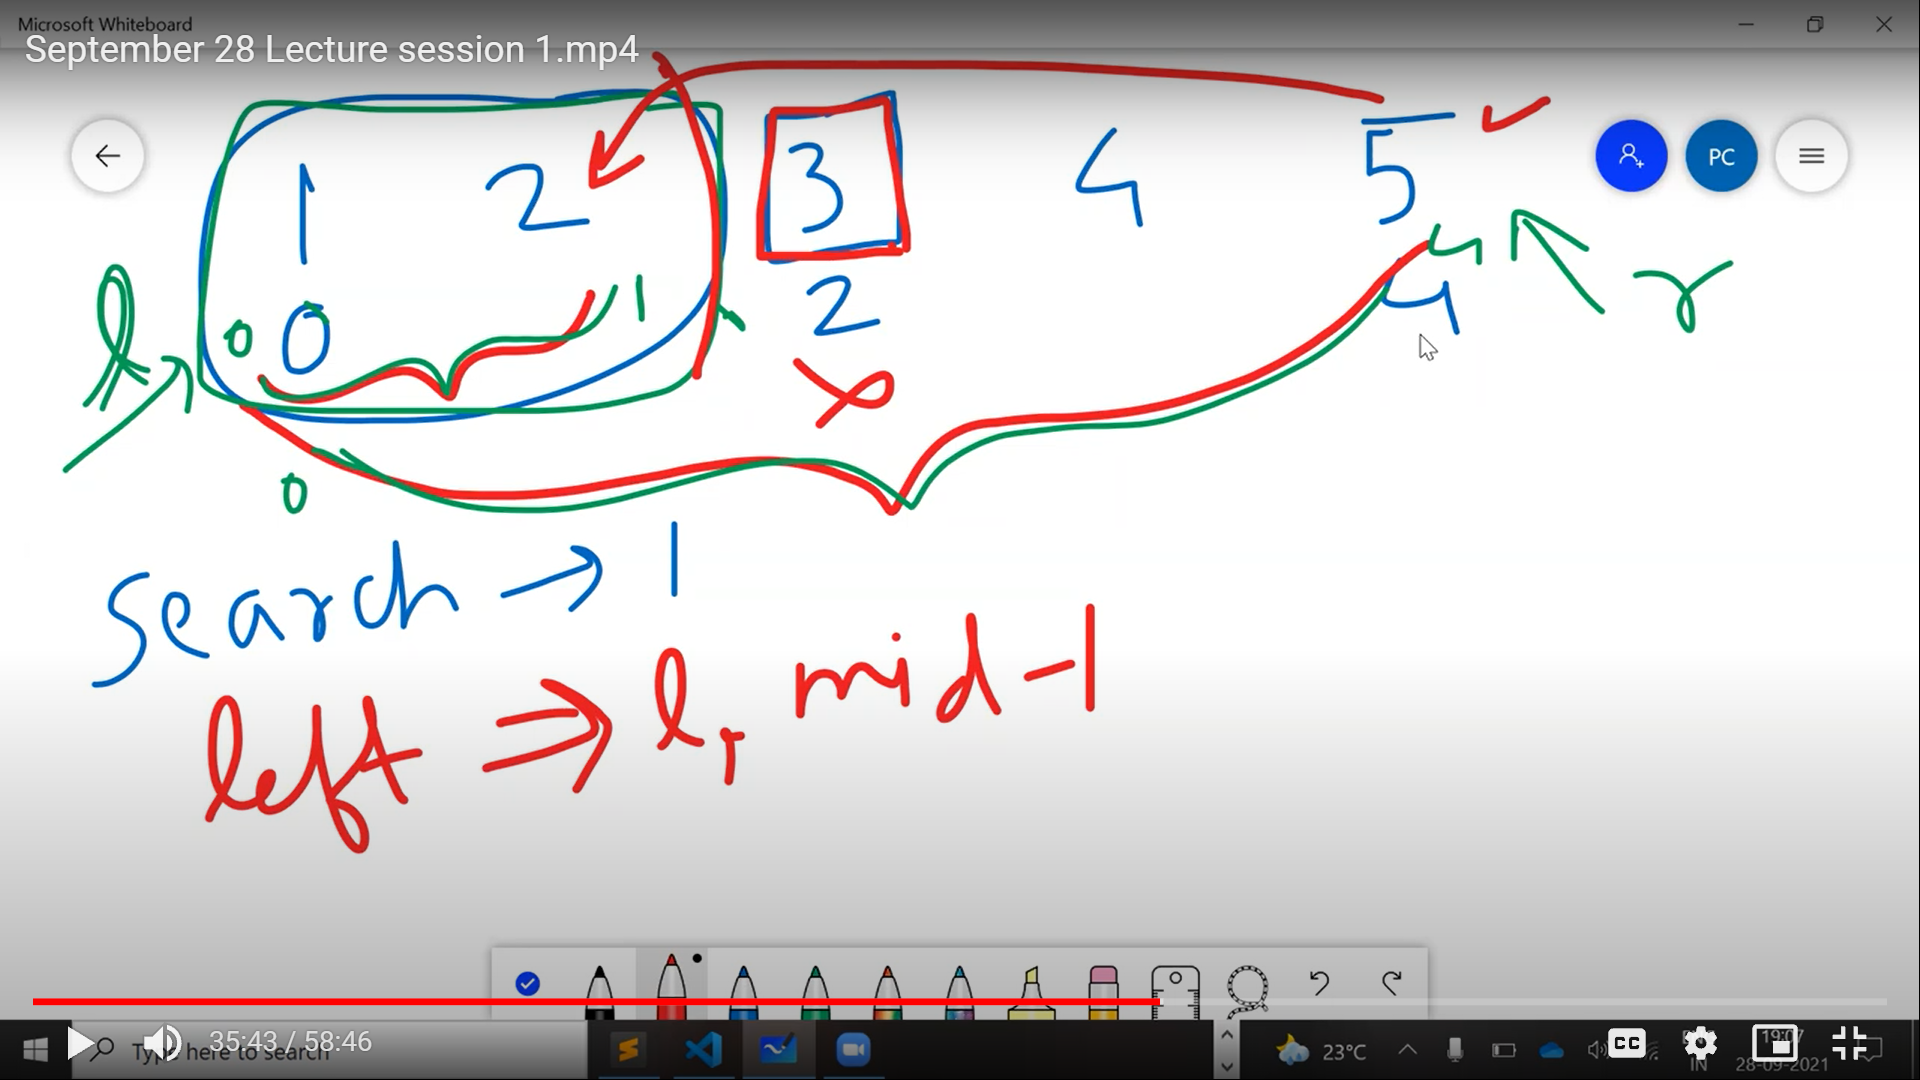 Microsoft Whiteboard
September 28 Lecture session 1.mp4
1 2 3 4 5
PC
l 0 0 1 2 4 4 r
0
Search → 1
left ⇒ l, mid-1
35:43 / 58:46
Type here to search
23°C
CC
19:07
IN
28-09-2021